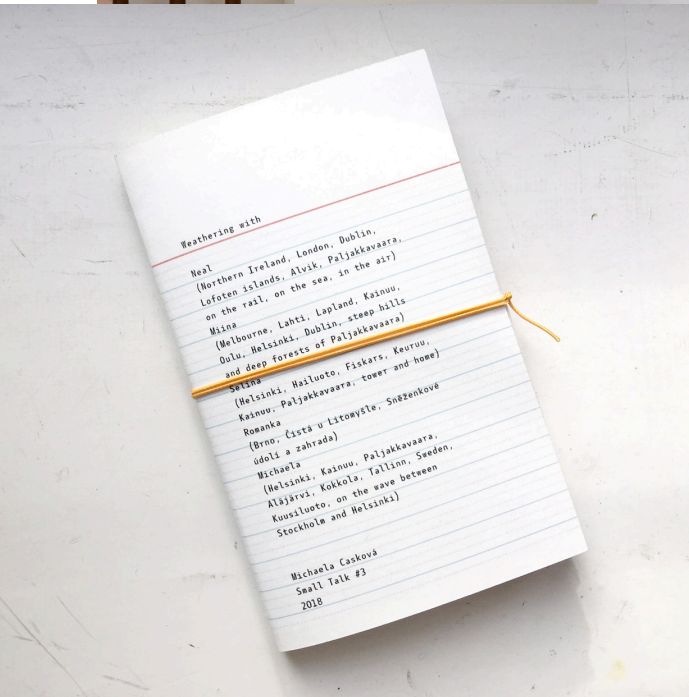 Weathering with
Neal
(Northern Ireland, London, Dublin,
Lofoten islands, Alvik, Paljakkavaara,
on the rail, on the sea, in the air)
Miina
(Melbourne, Lahti, Lapland, Kainuu,
Oulu, Helsinki, Dublin, steep hills
and deep forests of Paljakkavaara)
Selina
(Helsinki, Hailuoto, Fiskars, Keuruu,
Kainuu, Paljakkavaara, tower and home)
Romanka
(Brno, Čistá u Litomyšle, Sněženkové
údolí a zahrada)
Michaela
(Helsinki, Kainuu, Paljakkavaara,
Alajärvi, Kokkola, Tallinn, Sweden,
Kuusiluoto, on the wave between
Stockholm and Helsinki)
Michaela Casková
Small Talk #3
2018